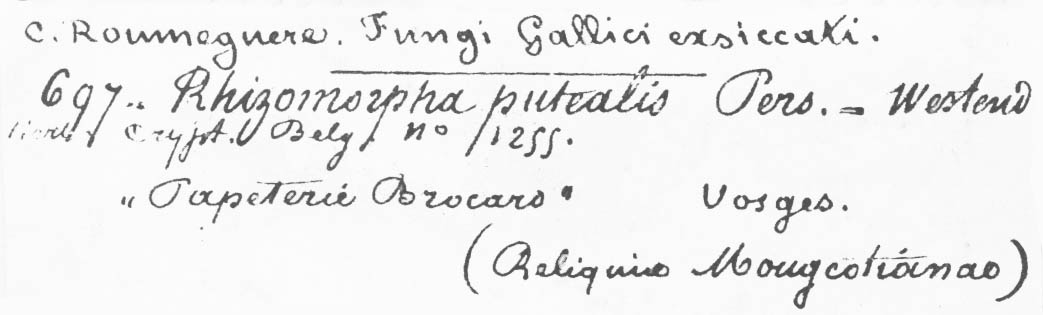 C. Roumeguere. Fungi Gallici exsiccati.
697.. Rhizomorpha putealis Pers. = Westend
Herb. Crypt. Belg. no 1255.
"Papeterie Brocard" Vosges.
(Reliquiae Mougeotianae)